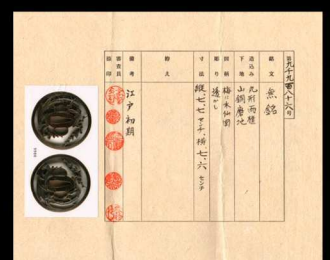 第九千九百八十六号
銘文 無銘
造込み 丸形両櫃
下地 山銅磨地
図柄 梅に水仙図
彫り 透かし
寸法 縦、七、七センチ、横、七、六センチ
附文
備考 江戸初期
審査員
証印